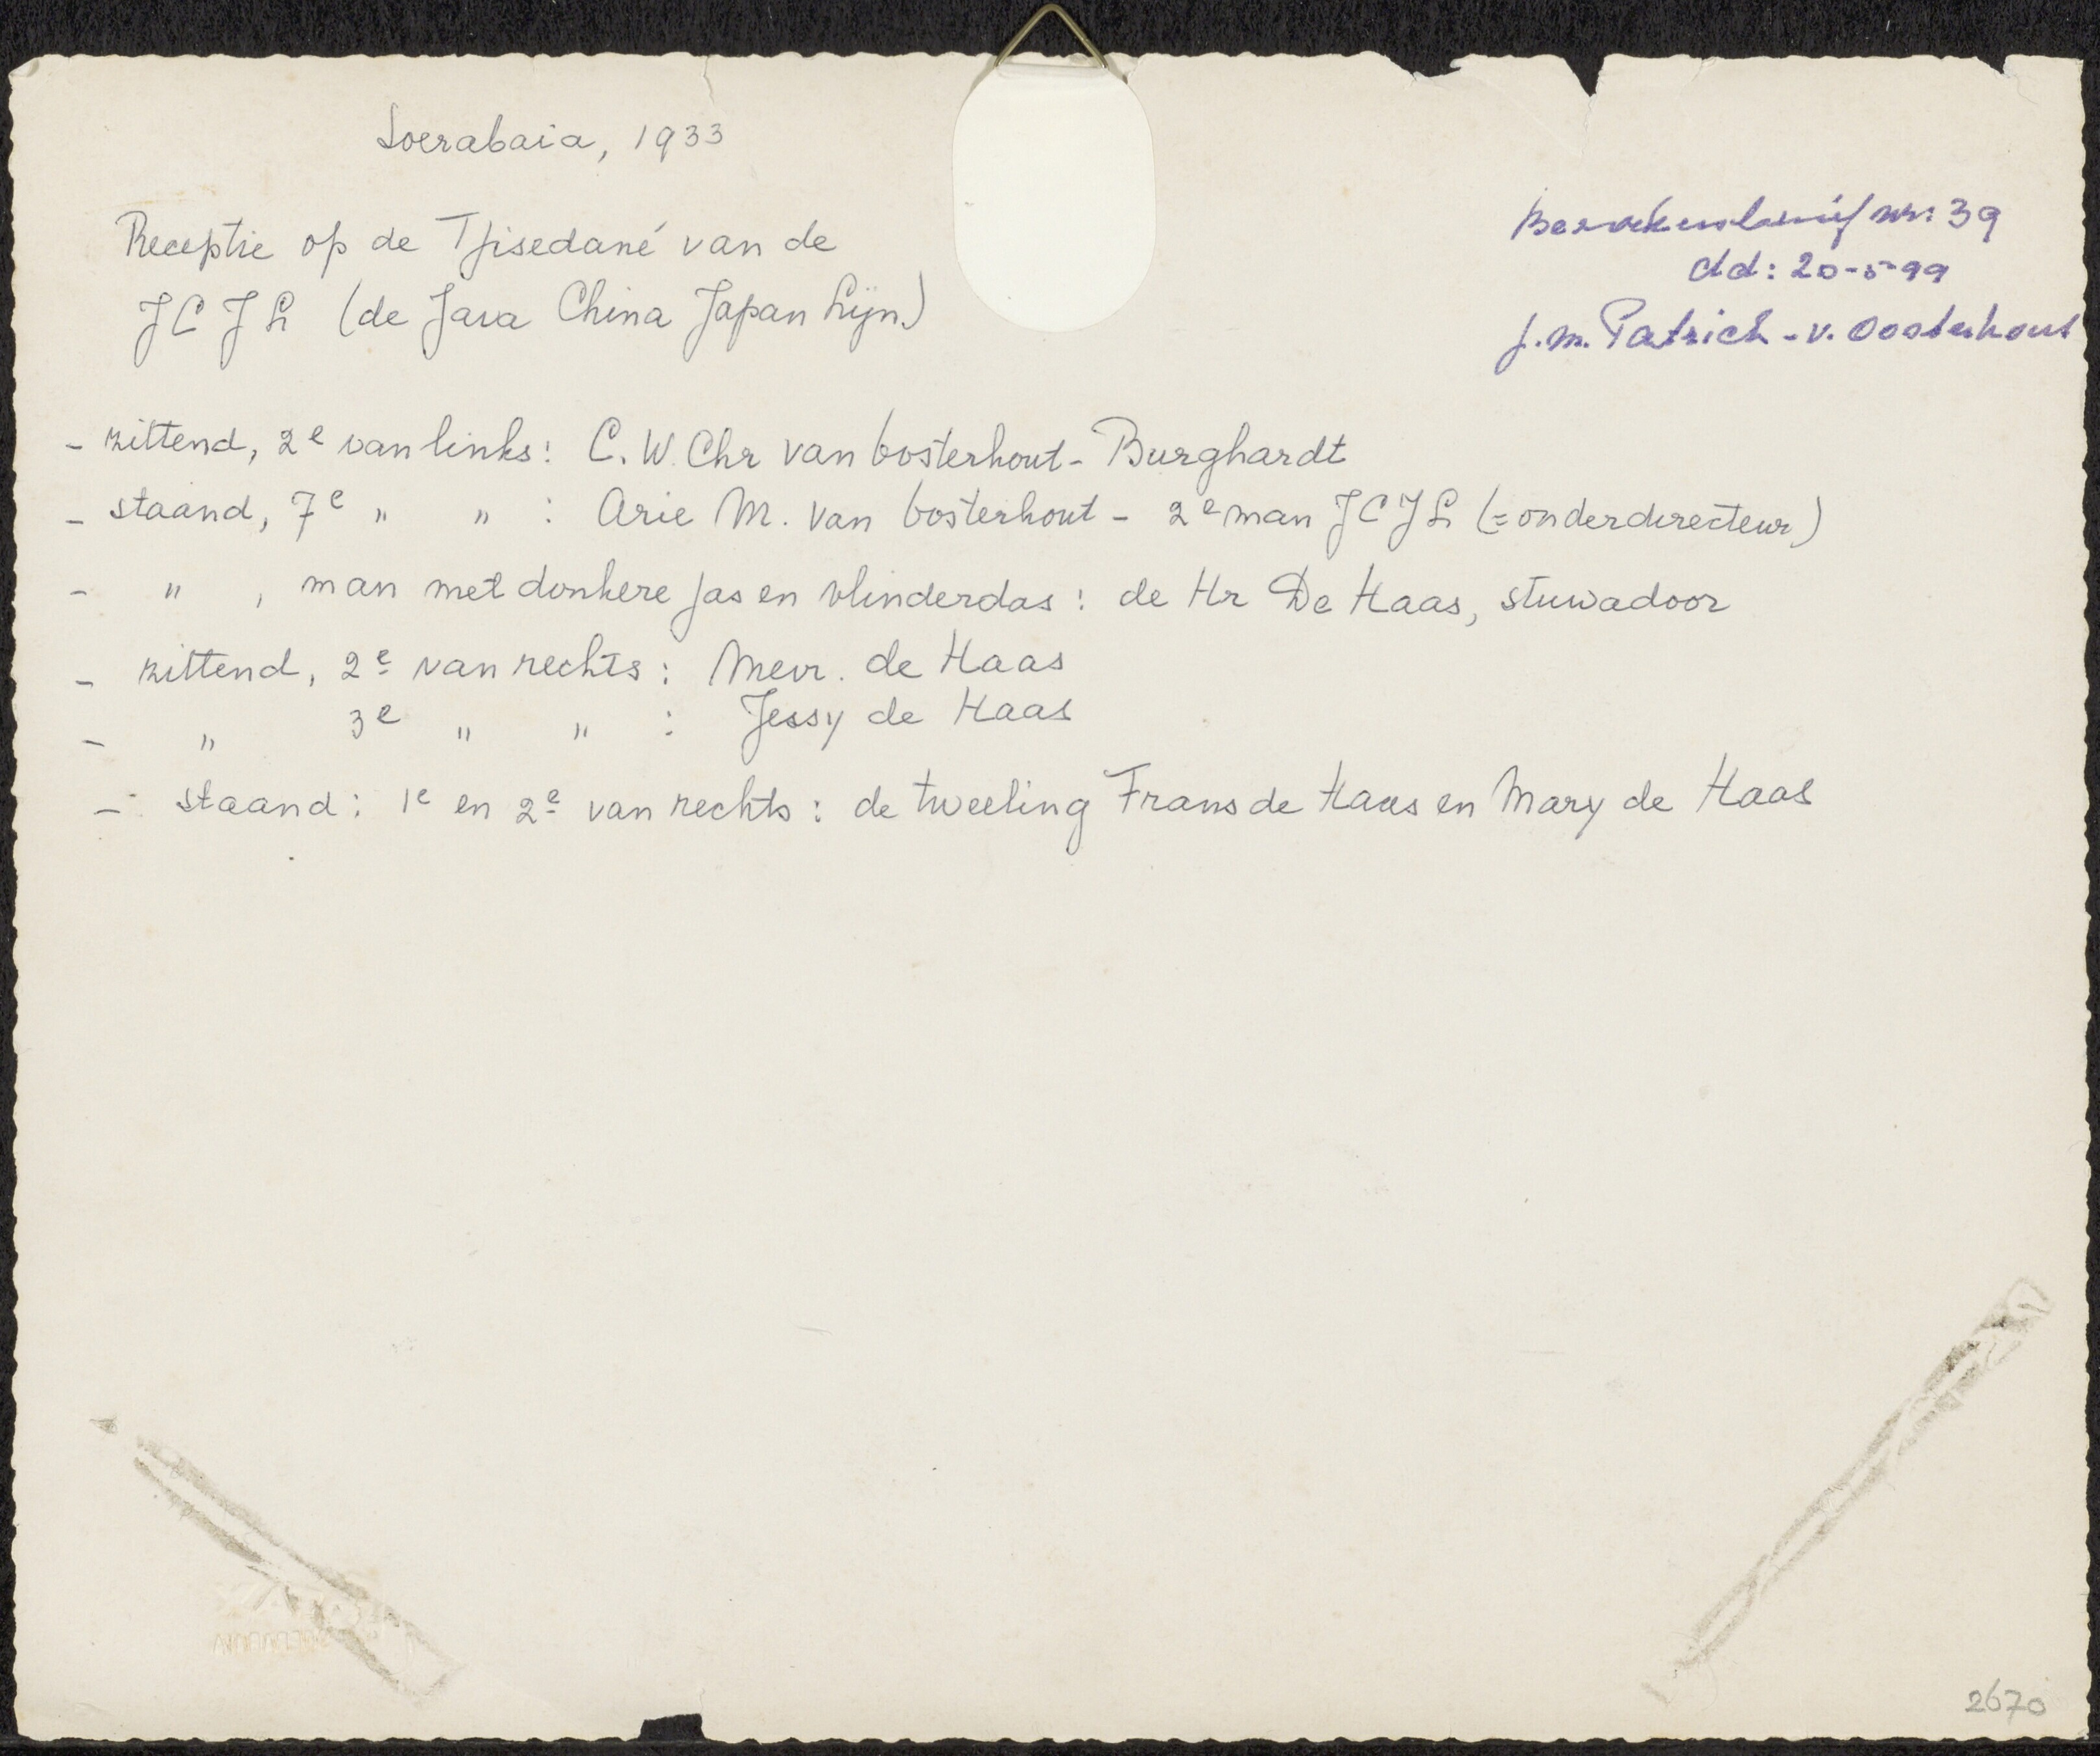 Soerabaia, 1933
Receptie op de Tjisedané van de
JCJL (de Java China Japan Lijn)
- zittend, 2e van links: C. W. Chr van Oosterhout - Burghardt
- staand, 7e " " : Arie M. van Oosterhout - 2e man JCJL (= onderdirecteur)
- " , man met donkere jas en vlinderdas : de Hr De Haas, stuwadoor
- zittend, 2e van rechts : Mevr. de Haas
- " 3e " " : Jessy de Haas
- staand : 1e en 2e van rechts : de tweeling Frans de Haas en Mary de Haas
nr: 39
dd: 20-5-99
J.M. Patrich - v. Oosterhout
2670